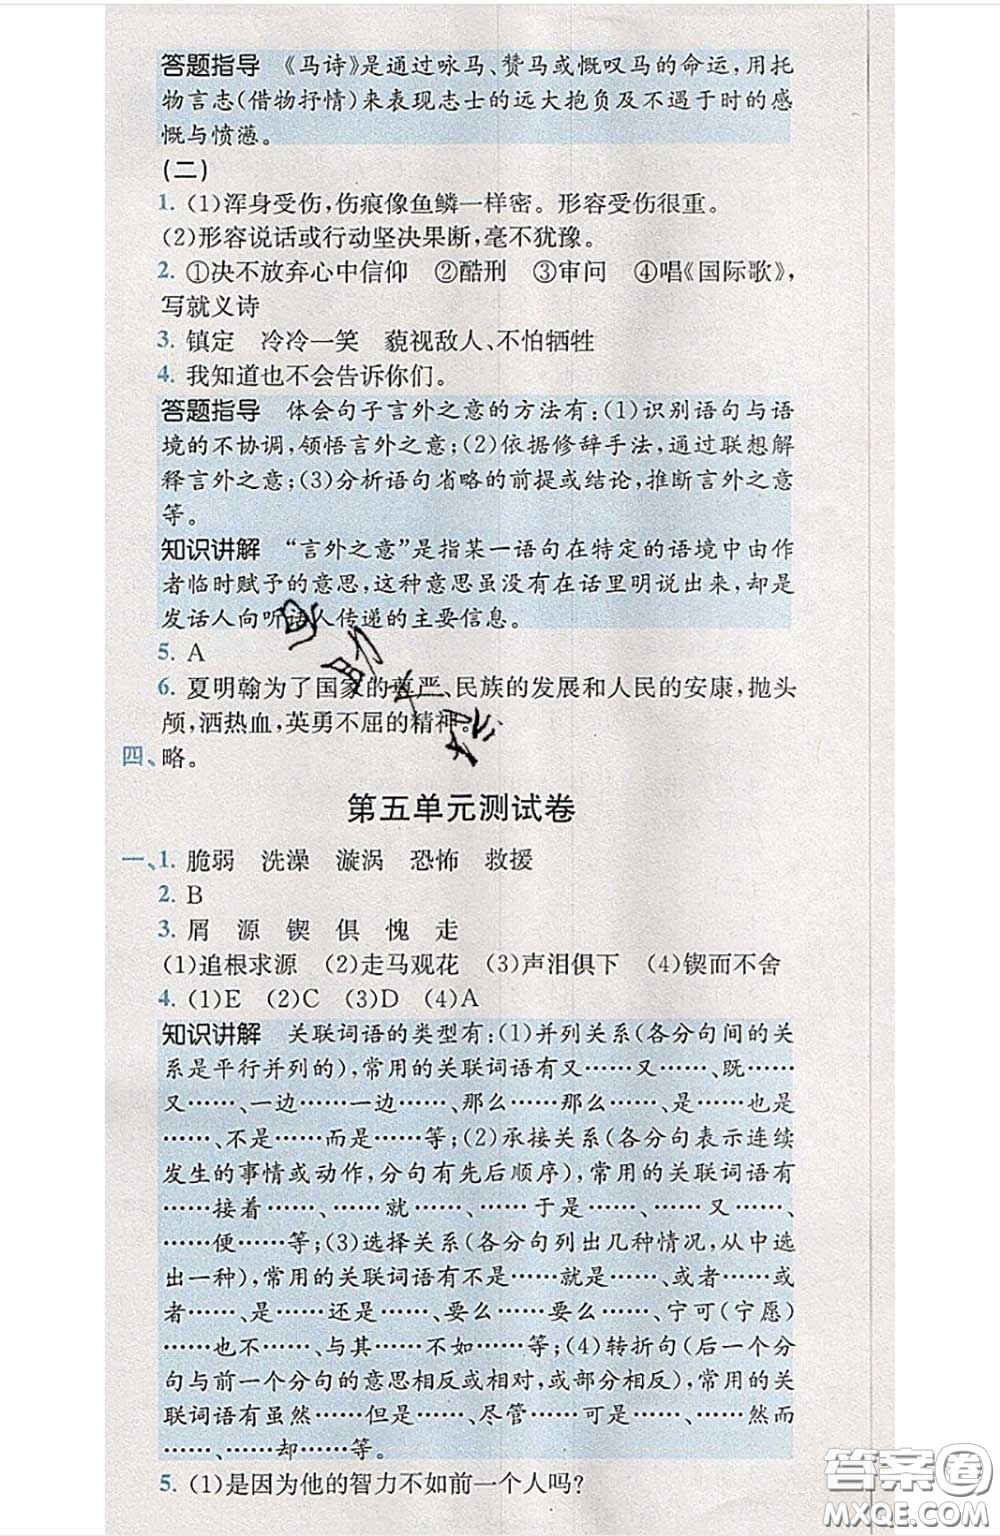 答题指导　《马诗》是通过咏马、赞马或慨叹马的命运,用托
物言志(借物抒情)来表现志士的远大抱负及不遇于时的感
慨与愤懑。
(二)
1. (1)浑身受伤,伤痕像鱼鳞一样密。形容受伤很重。
(2)形容说话或行动坚决果断,毫不犹豫。
2. ①决不放弃心中信仰　②酷刑　③审问　④唱《国际歌》,
写就义诗
3. 镇定　冷冷一笑　藐视敌人、不怕牺牲
4. 我知道也不会告诉你们。
答题指导　体会句子言外之意的方法有:(1)识别语句与语
境的不协调,领悟言外之意;(2)依据修辞手法,通过联想解
释言外之意;(3)分析语句省略的前提或结论,推断言外之意
等。
知识讲解　“言外之意”是指某一语句在特定的语境中由作
者临时赋予的意思,这种意思虽没有在话里明说出来,却是
发话人向听话人传递的主要信息。
5. A
6. 夏明翰为了国家的尊严、民族的发展和人民的安康,抛头
颅,洒热血,英勇不屈的精神。
四、略。
第五单元测试卷
一、1. 脆弱　洗澡　漩涡　恐怖　救援
2. B
3. 屑　源　锲　俱　愧　走
(1)追根求源　(2)走马观花　(3)声泪俱下　(4)锲而不舍
4. (1)E　(2)C　(3)D　(4)A
知识讲解　关联词语的类型有:(1)并列关系(各分句间的关
系是平行并列的),常用的关联词语有又……又……、既……
又……、一边……一边……、那么……那么……、是……也是
……、不是……而是……等;(2)承接关系(各分句表示连续
发生的事情或动作,分句有先后顺序),常用的关联词语有
……接着……、……就……、……于是……、……又……、
……便……等;(3)选择关系(各分句列出几种情况,从中选
出一种),常用的关联词语有不是……就是……、或者……或
者……、是……还是……、要么……要么……、宁可(宁愿)
……也不……、与其……不如……等;(4)转折句(后一个分
句与前一个分句的意思相反或相对,或部分相反),常用的关
联词语有虽然……但是……、尽管……可是……、……然而
……、……却……等。
5. (1)是因为他的智力不如前一个人吗?
答案圈
MXQE.COM